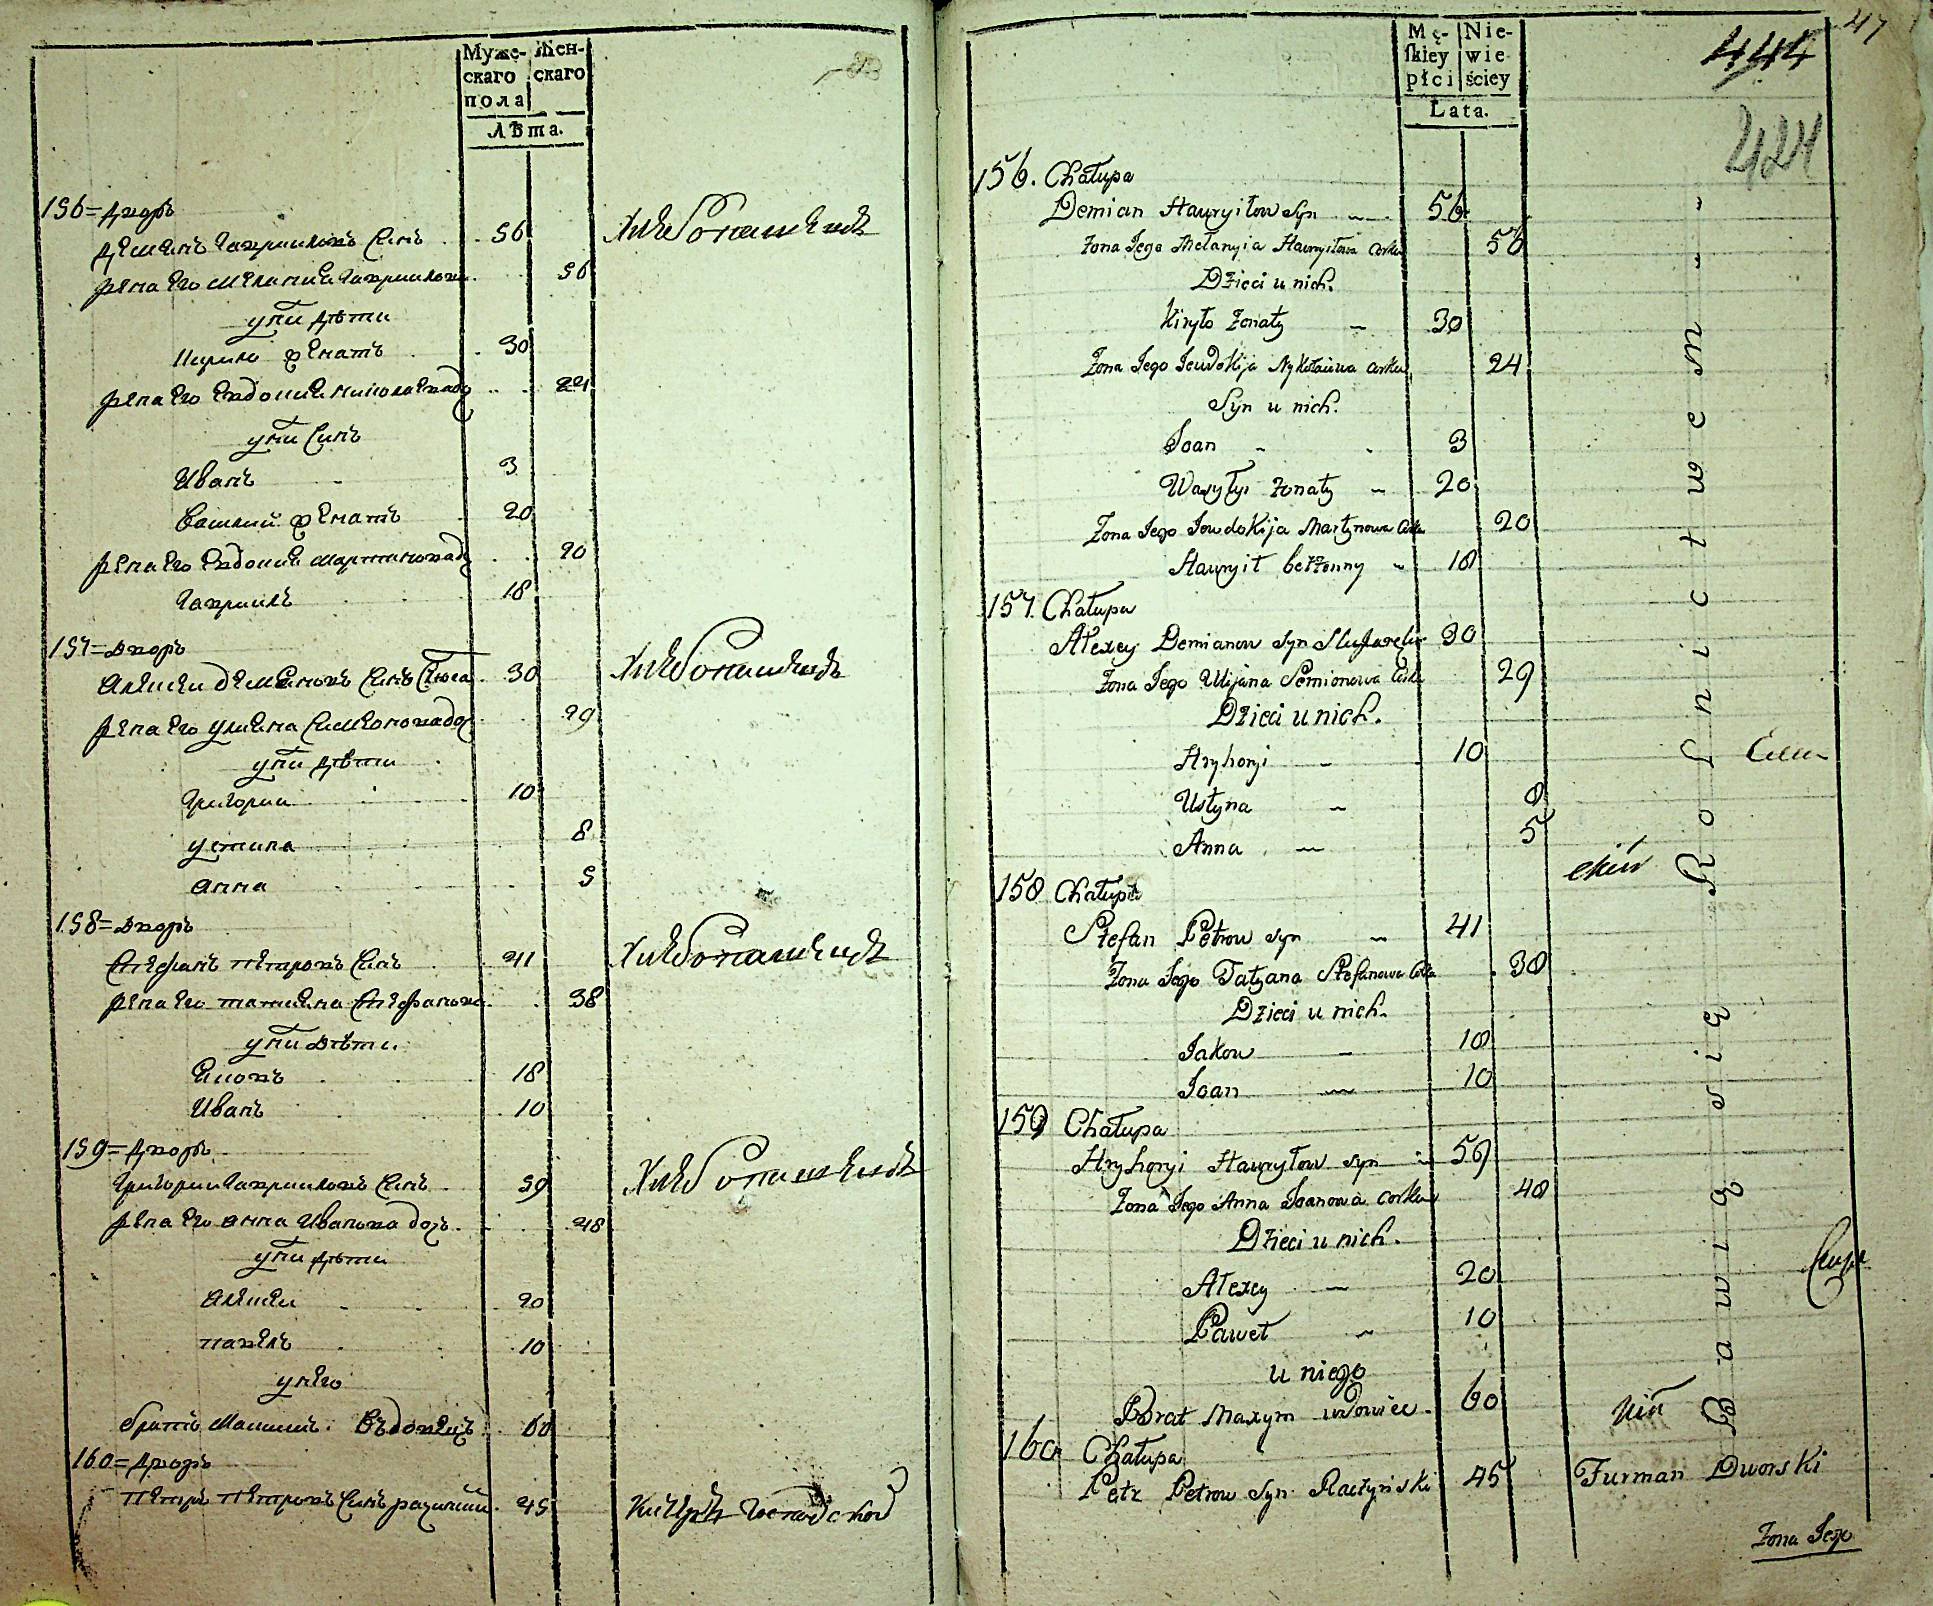 Муже-
скаго
пола
Жен-
скаго
Лѣта.
156= Дворъ
Демянъ Гаврииловъ Синъ 56
Жена Его Мелания Гавриилова 56
У ни Дѣти
Кирило Женатъ 30
Жена Его Евдокия Николаева До 24
У ни Синъ
Иванъ 3
Василий Женатъ 20
Жена Его Евдокия Мартинова До 20
Гавриилъ 18
157= Дворъ
Алексей Демяновъ Синъ 30
Жена Его Улияна Симеонова До 29
У ни Дѣти
Григорий 10
Устина 8
Анна 5
158= Дворъ
Стефанъ Петровъ Синъ 41
Жена Его Татияна Стефанова 38
У ни Дѣти
Яковъ 18
Иванъ 10
159= Дворъ
Григорий Гаврииловъ Синъ 59
Жена Его Анна Иванова Дочь 48
У ни Дѣти
Алексей 20
Павелъ 10
У Него
Братъ Максимъ Вдовецъ 60
160= Дворъ
Петръ Петровъ Синъ 45
Хлебопашецъ
Хлебопашецъ
Хлебопашецъ
Хлебопашецъ
Mę-
skiey
płci
Nie-
wie-
ściey
Lata.
47
444
424
156. Chałupa
Demian Hawryiłow Syn 56
Zona Jego Mełanyia Hawryiłowa Corka 56
Dzieci u nich.
Kiryło Zonaty 30
Zona Jego Jewdokija Mykołaiwa Corka 24
Syn u nich.
Joan 3
Wasylyi Zonaty 20
Zona Jego Jewdokija Martynowa Corka 20
Hawryił bezżenny 18
157. Chałupa
Alexey Demianow Syn 30
Zona Jego Ulijana Semionowa Corka 29
Dzieci u nich.
Hryhoryi 10
Ustyna 8
Anna 5
158 Chałupa
Stefan Petrow Syn 41
Zona Jego Tatyana Stefanowa Corka 38
Dzieci u nich.
Jakow 18
Joan 10
159 Chałupa
Hryhoryi Hawryłow Syn 59
Zona Jego Anna Joanowa Corka 48
Dzieci u nich.
Alexey 20
Paweł 10
u niego
Brat Maxym wdowiec 60
160 Chałupa
Petr Petrow Syn Raczynski 45 Furman Dworski
Bawią się Rolnictwem
Zona Jego